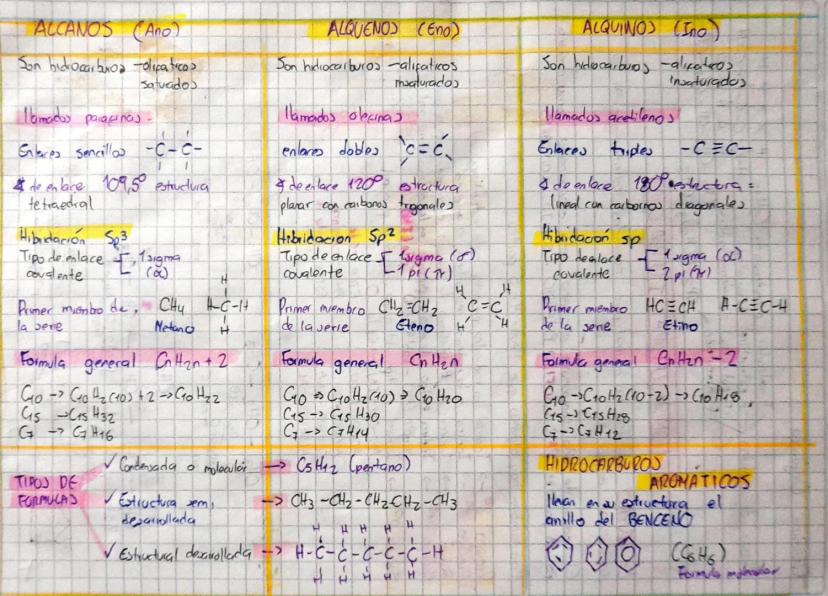 ALCANOS (Ano)
Son hidrocarburos -alifaticos
saturados
llamados parafinas.
Enlaces sencillos -C-C-
∡ de enlace 109,5° estructura
tetraedral
Hibridación Sp³
Tipo de enlace [ 1 sigma
covalente (α)
Primer miembro de, CH4 H-C-H
la serie Metano
H
H
Formula general CnH2n+2
C10 → C10H2(10)+2 → C10H22
C15 → C15H32
C7 → C7H16
ALQUENOS (Eno)
Son hidrocarburos -alifaticos
insaturados
llamados olefinas
enlaces dobles C=C
∡ de enlace 120° estructura
planar con carbonos trigonales
Hibridacion Sp²
Tipo de enlace [ 1 sigma (σ)
covalente 1 pi (π)
H H
Primer miembro CH2=CH2 C=C
de la serie Eteno H H
Formula general CnH2n
C10 → C10H2(10) → C10H20
C15 → C15H30
C7 → C7H14
ALQUINOS (Ino)
Son hidrocarburos -alifaticos
insaturados
llamados acetilenos
Enlaces triples -C≡C-
∡ de enlace 180° estectura =
lineal con carbonos diagonales
Hibridación sp
Tipo de alace [ 1 sigma (α)
covalente 2 pi (π)
Primer miembro HC≡CH H-C≡C-H
de la serie Etino
Formula general CnH2n-2
C10 → C10H2(10-2) → C10H18
C15 → C15H28
C7 → C7H12
TIPOS DE
FORMULAS
✓ Condensada o molecular → C5H12 (pentano)
✓ Estructura semi → CH3-CH2-CH2-CH2-CH3
desarrollada
H H H H H
✓ Estructural desarrollada → H-C-C-C-C-C-H
H H H H H
HIDROCARBUROS
AROMÁTICOS
llevan en su estructura el
anillo del BENCENO
(C6H6)
Formula molecular